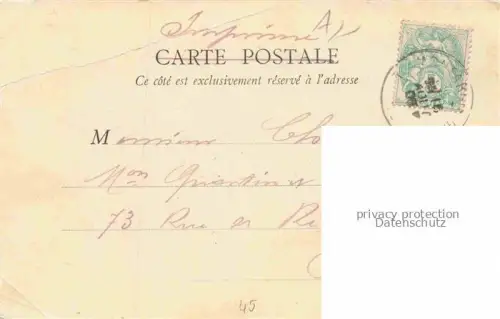 Imprimé A
CARTE POSTALE
Ce côté est exclusivement réservé à l'adresse
Monsieur
Mon Quentin
73 Rue de
privacy protection
Datenschutz
45